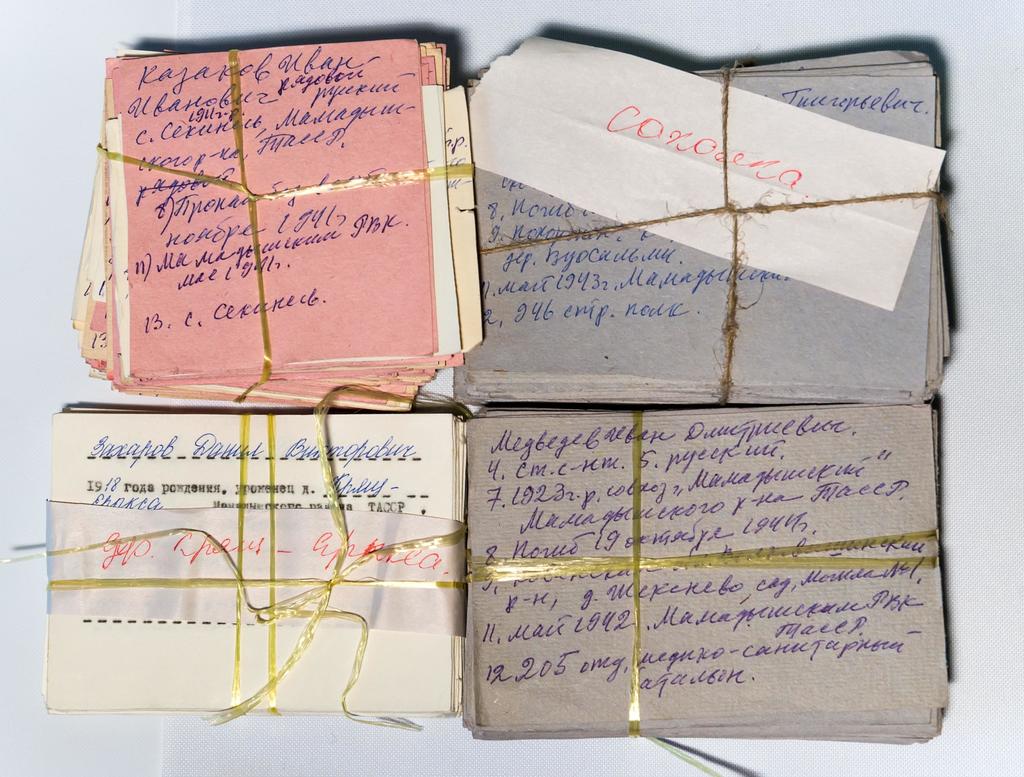 Казаков Иван
Иванович рядовой
1911 г.р. русский
с. Секинесь, Мамадыш-
ского р-на, ТассР.
рядовой
8) Пропал без вести
ноябре 1941г
11) Мамадышский РВК.
май 1941г.
13. с. Секинесь.
Григорьевич.
Соколка
8. Погиб
9. Похоронен
дер. Вуосальми.
11. май 1943г. Мамадышский
2, 946 стр. полк.
Захаров Данил Викторович
1918 года рождения, уроженец д. Крящ-
Ерыкса
Мамадышского района ТАССР.
дер. Крящ-Ерыкса.
Медведев Иван Дмитриевич.
4. ст. с-нт. 5. русский.
7. 1923г.р. совхоз „Мамадышский"
Мамадышского р-на ТассР.
8. Погиб 19 октября 1944г.
р-н, д. Жекснево, сад, могила №1,
11. май 1942. Мамадышским РВК
ТассР.
12 205 отд, медико-санитарный
батальон.